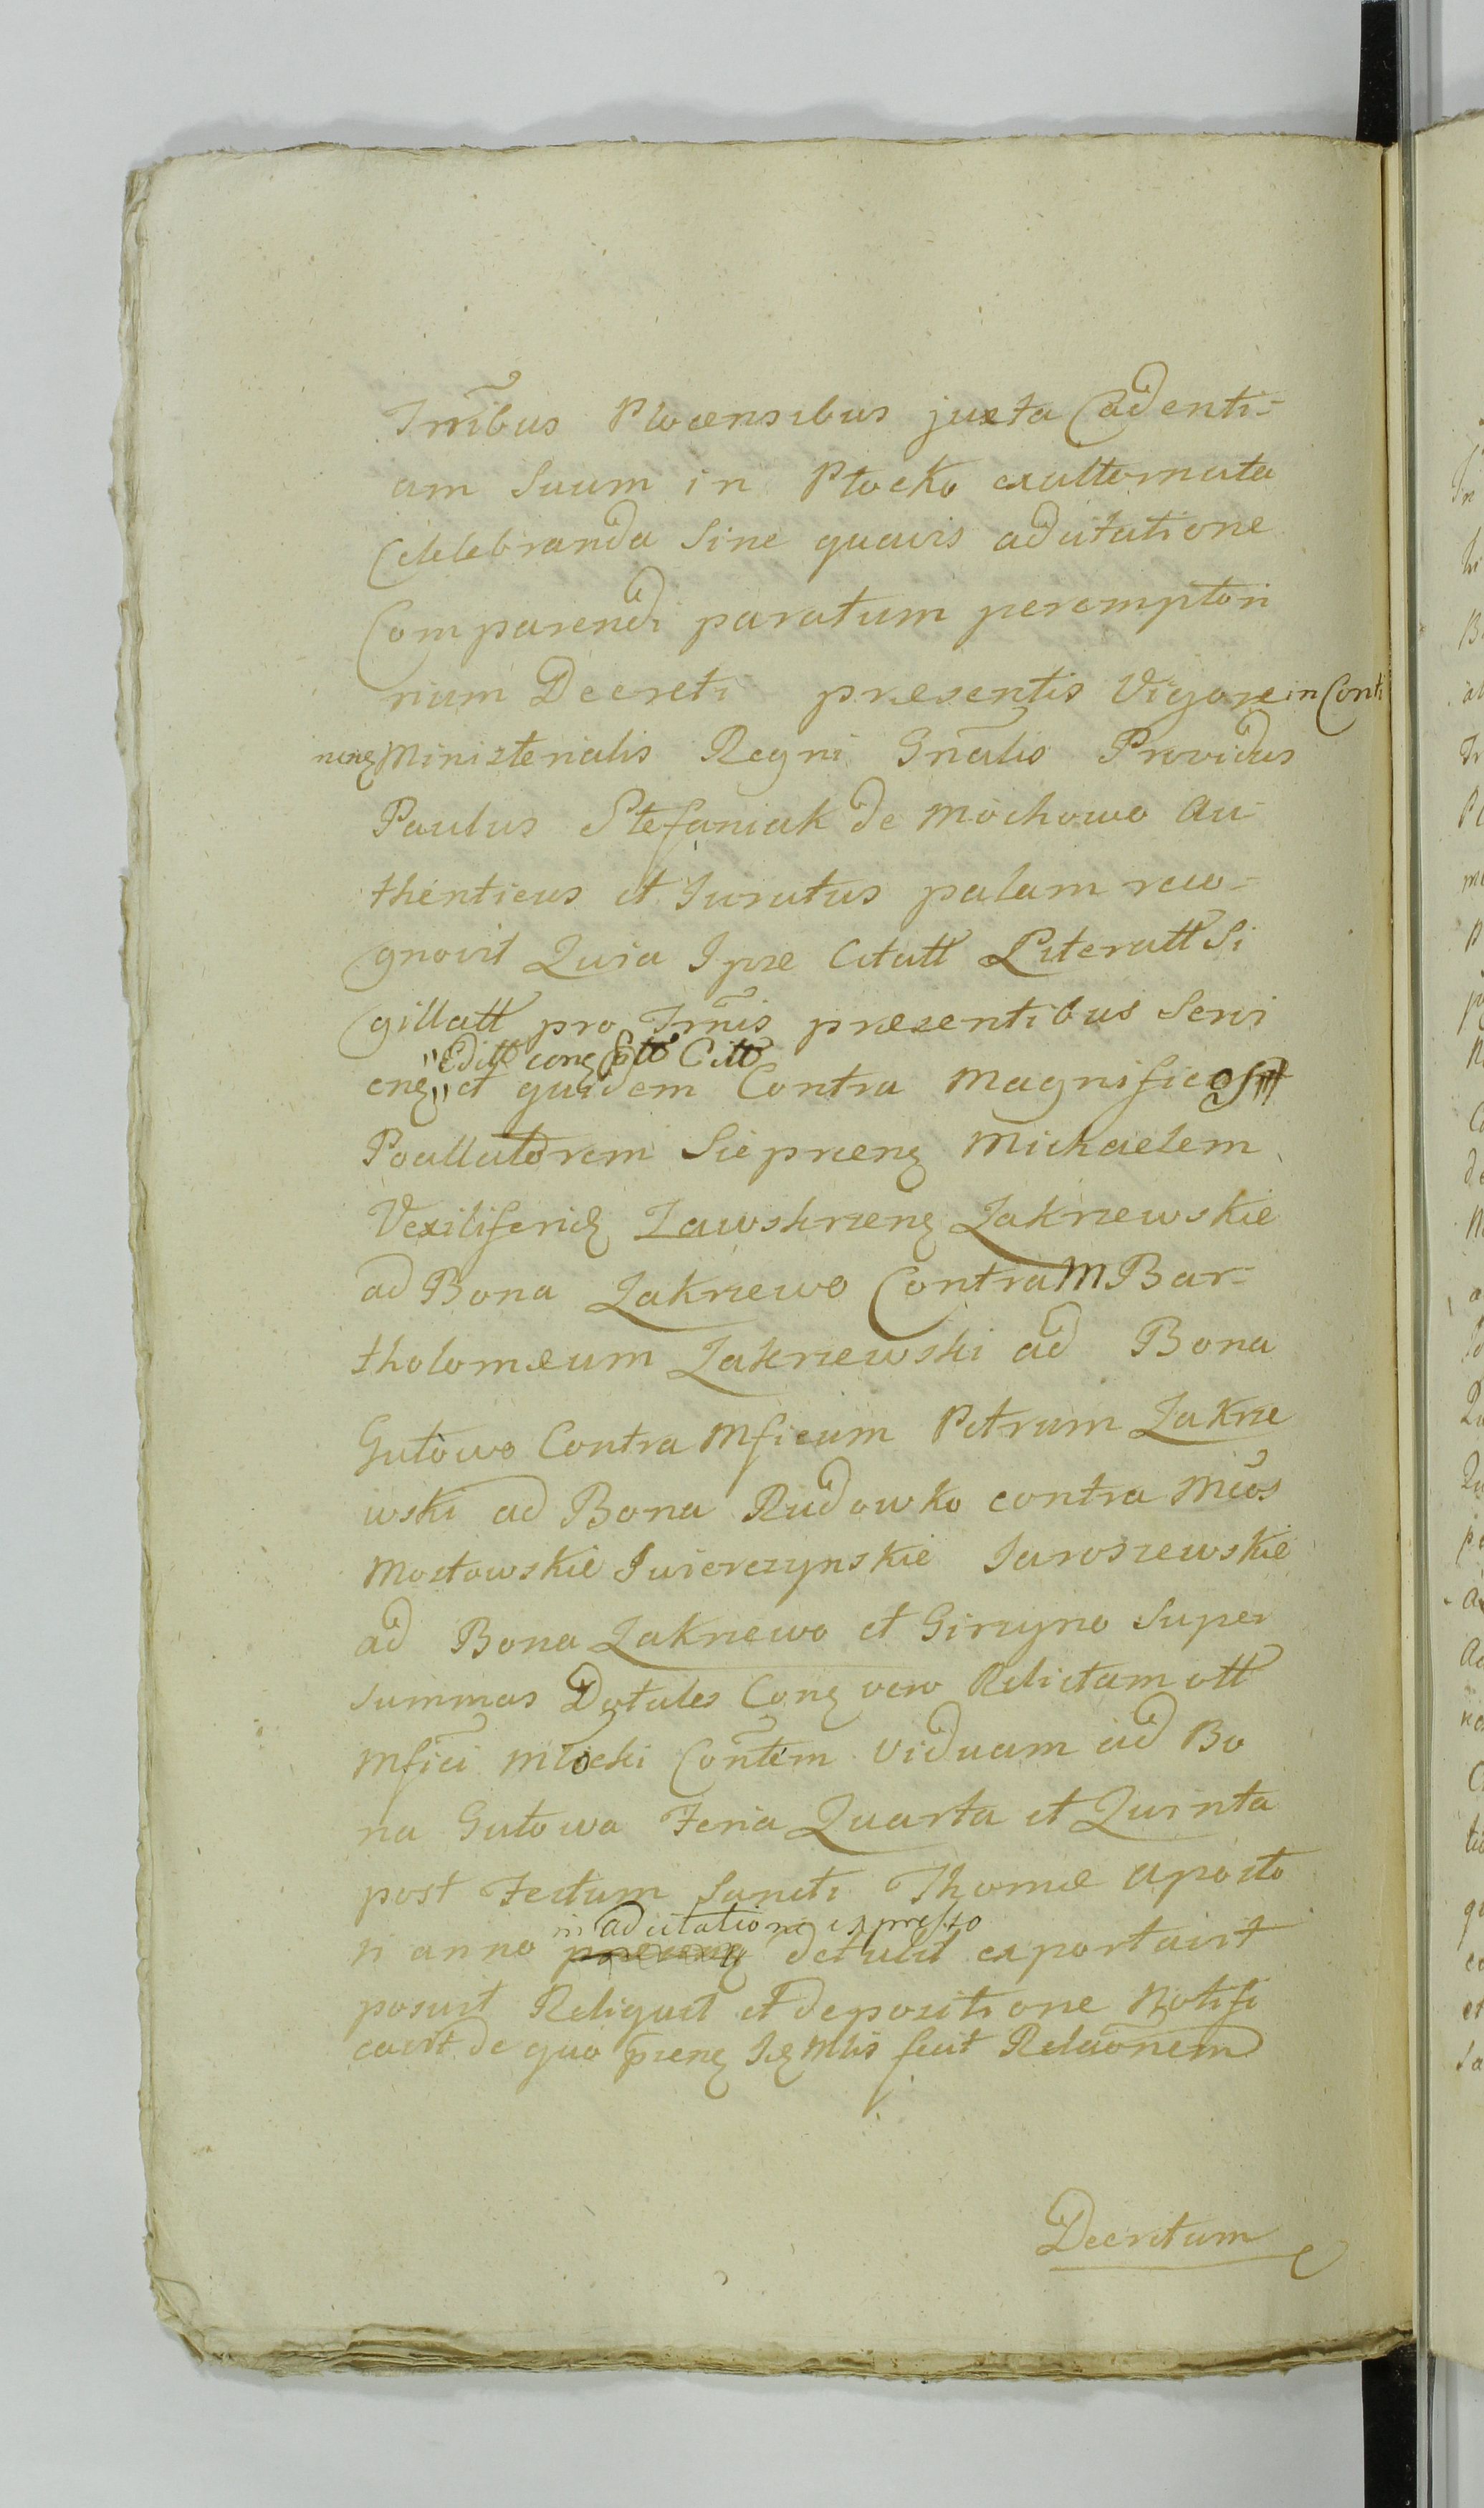 Trnībus Plocensibus juxta Cadenti-
am Suam in Płocko exalternata
Celebranda Sine quavis adcitatione
Comparendi paratum peremptori
rium Decreti presentis Vigore in Conti
nenς Ministerialis Regni Gnalis Providus
Paulus Stefaniak de Mochowo Au-
thenticus et Juratus palam reco-
gnovit Quia Ipse Citatt Literatt Si
gillatt pro Trnis presentibus Servi
"Editt conς Sptt Citt
enς" et quidem Contra Magnificos
Pocillatorem Sieprcenς Michaelem
Vexiliferidς Zawskrzenς Zakrzewskie
ad Bona Zakrzewo Contra M Bar-
tholomæum Zakrzewski ad Bona
Gutowo Contra Mficum Petrum Zakrze
wski ad Bona Rudowko contra Mcos
Mostowskie Swierczynskie Jaroszewskie
ad Bona Zakrzewo et Girzyno Super
Summas Dotales Conς vero Relictam ott
Mfici Mlocki Contēm Viduam ad Bo
na Gutowa Feria Quarta et Quinta
post Festum Sancti Thomæ Aposto
in adcitatione expresso
li anno detulit exportavit
posuit Reliquit et depositione Notifi
cavit de quo prenς Idς Mlis fecit Relaōnem
Decretum